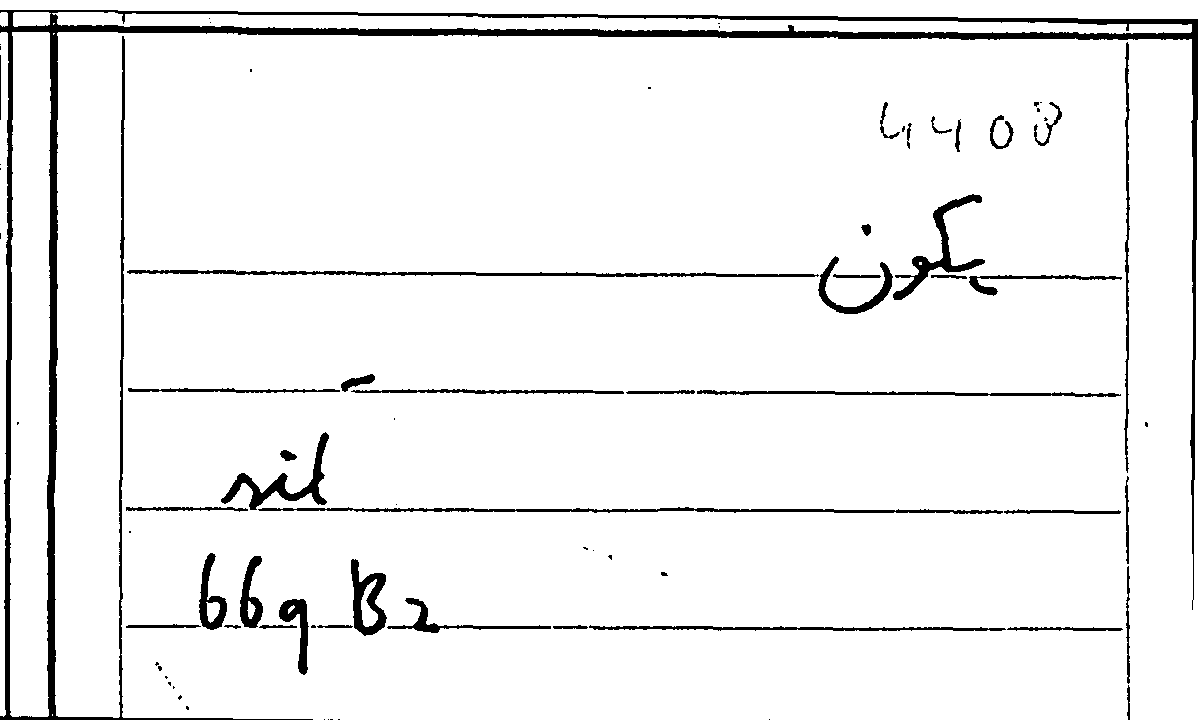 4408
یکون
-
sil
669 B2